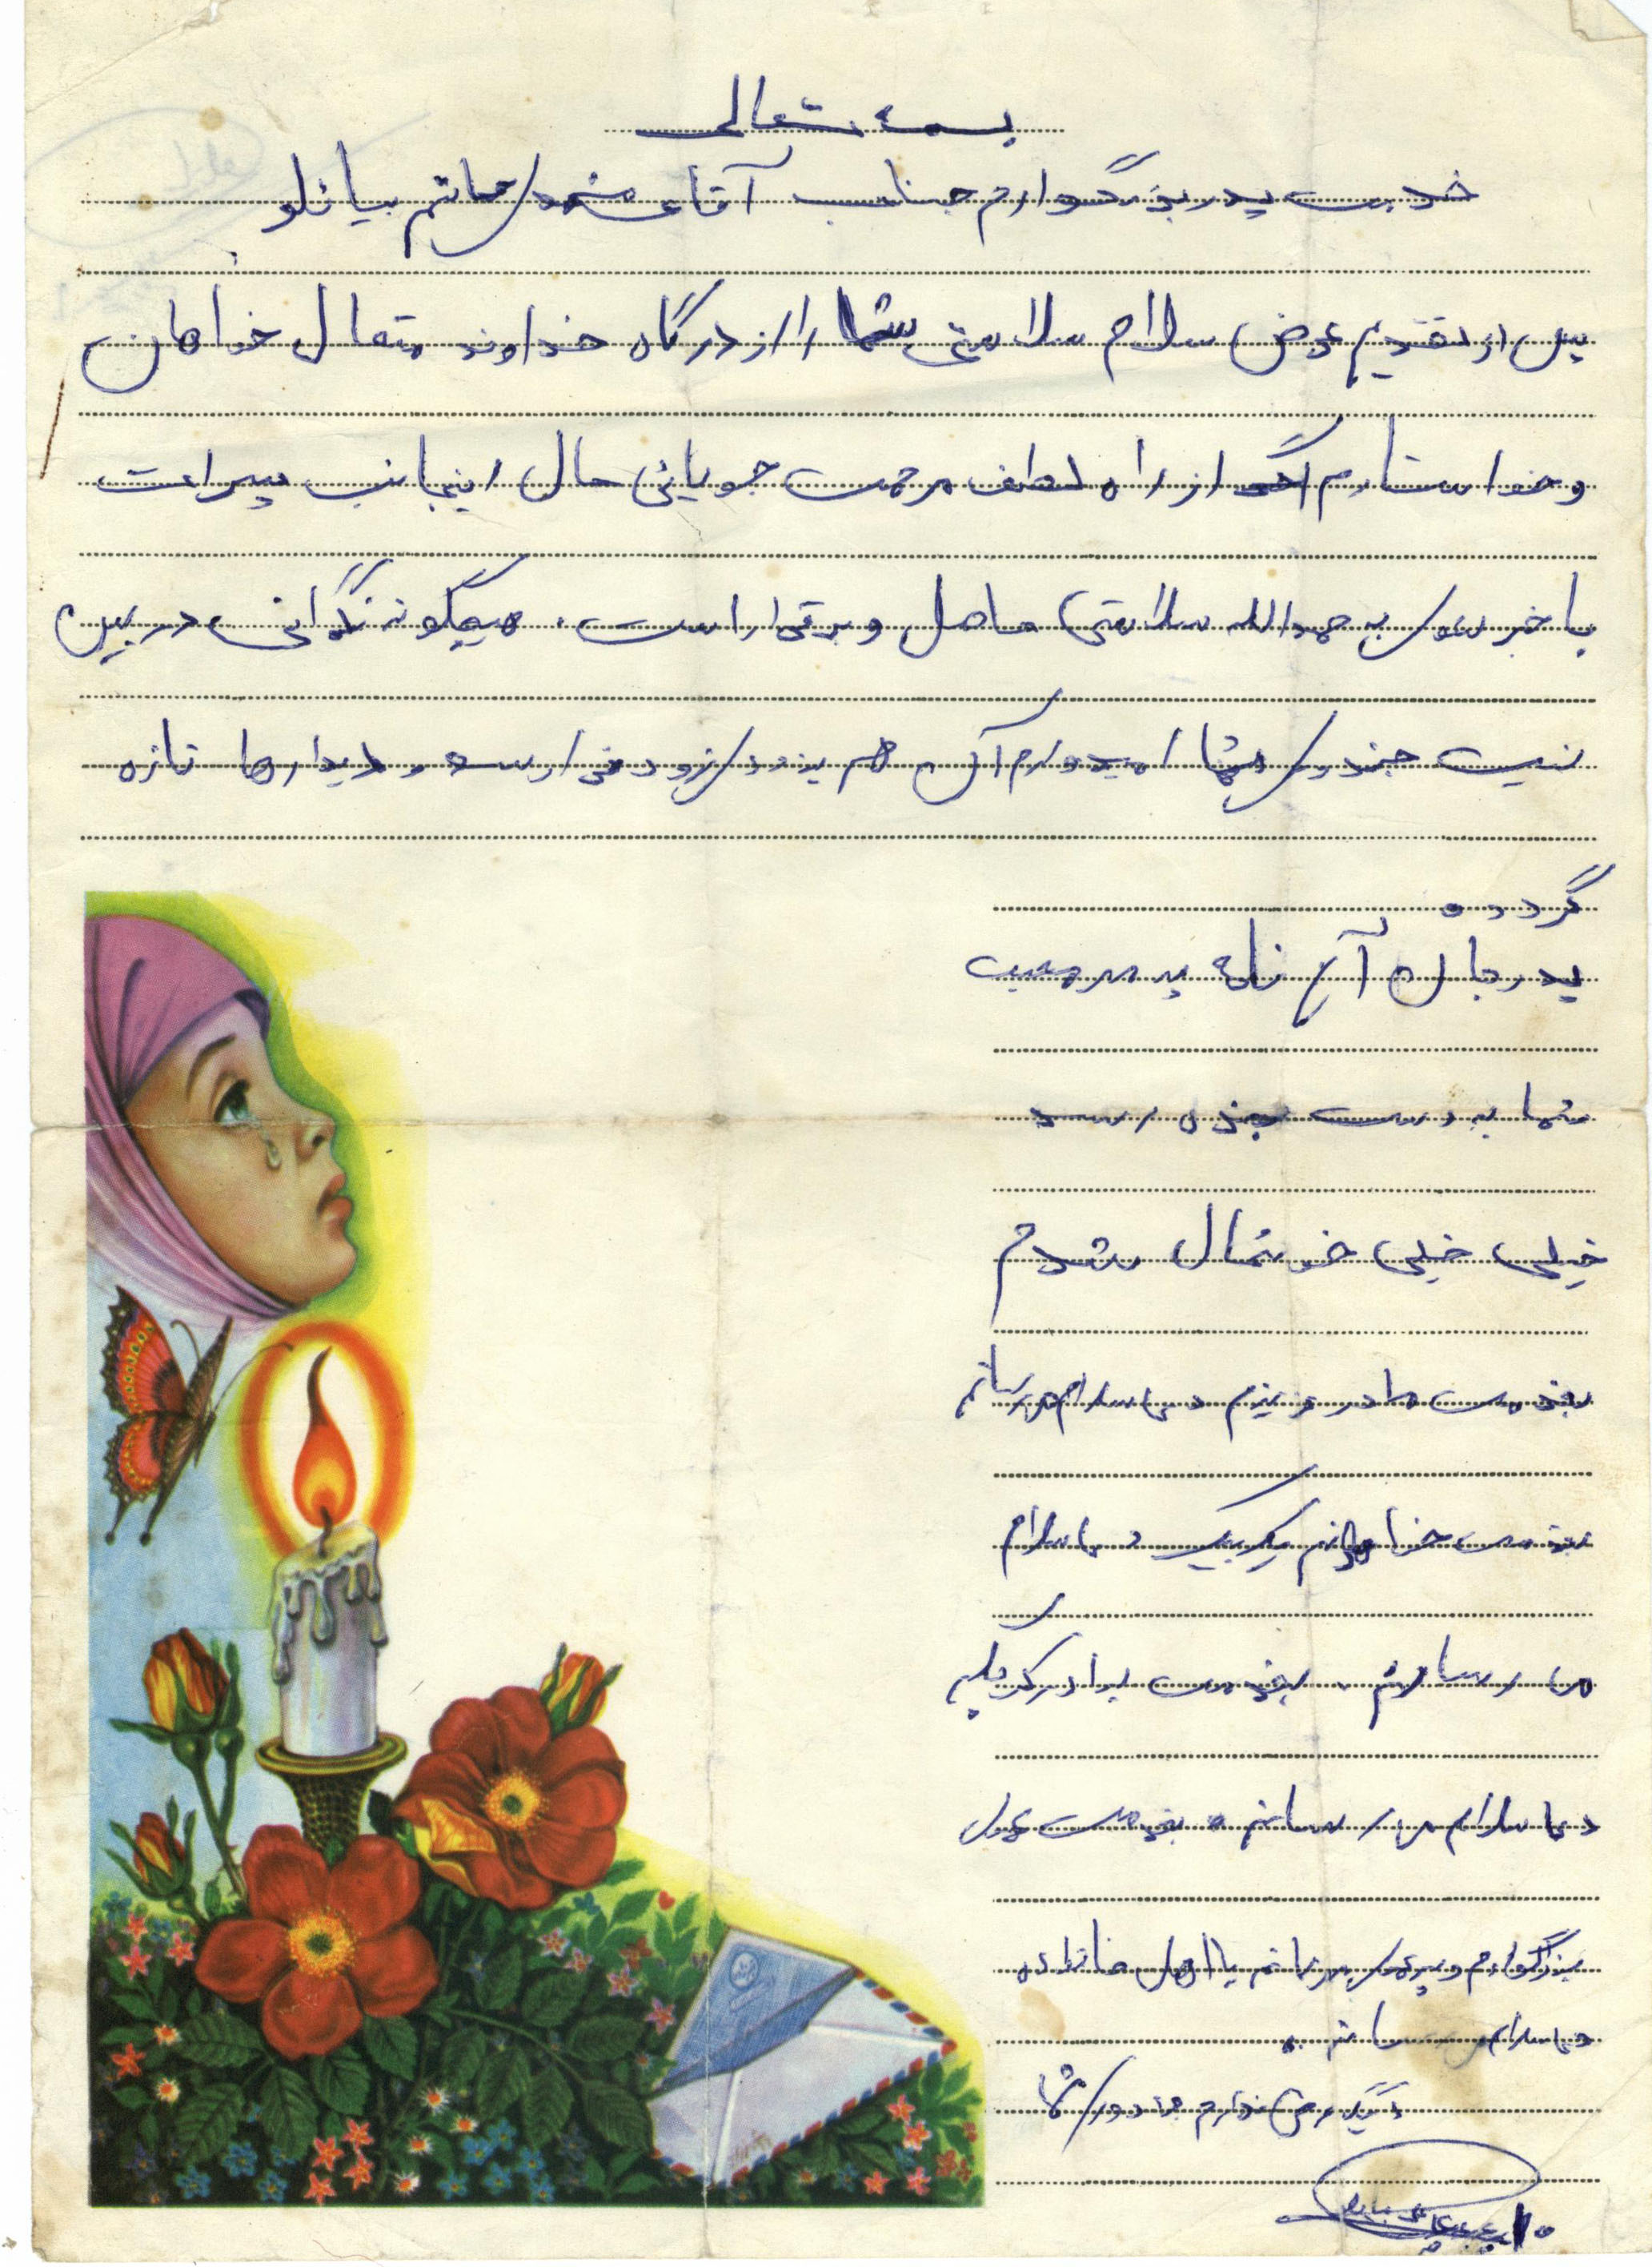 بسمه تعالی
خدمت پدر بزرگوارم جناب آقای حاتم بیانلو
پس از تقدیم عرض سلام سلامتی شما را از درگاه خداوند متعال خواهان
و خواستارم اگر از راه لطف مرحمت جویائی حال اینجانب پسرات
باخبر شوی به حمدالله سلامتی حاصل و برقرار است. هیچگونه نگرانی در بین
نیست جز دوری شما امیدوارم آن هم بزودی زود فرا رسد و دیدارها تازه
گردد
پدر جان آن نامه پر مرحمت
شما به دست بنده رسد
خیلی خیلی خوشحال شدم
بخدمت مادر عزیزم دعا سلام می رسانم
بخدمت خواهرانم یک یک دعا سلام
می رسانم. بخدمت برادر
دعا سلام می رسانم. بخدمت عموی
بزرگوارم و پسر عموی مهربانم با اهل خانواده
دعا سلام می رسانم.
دیگر عرضی ندارم جز دوری شما